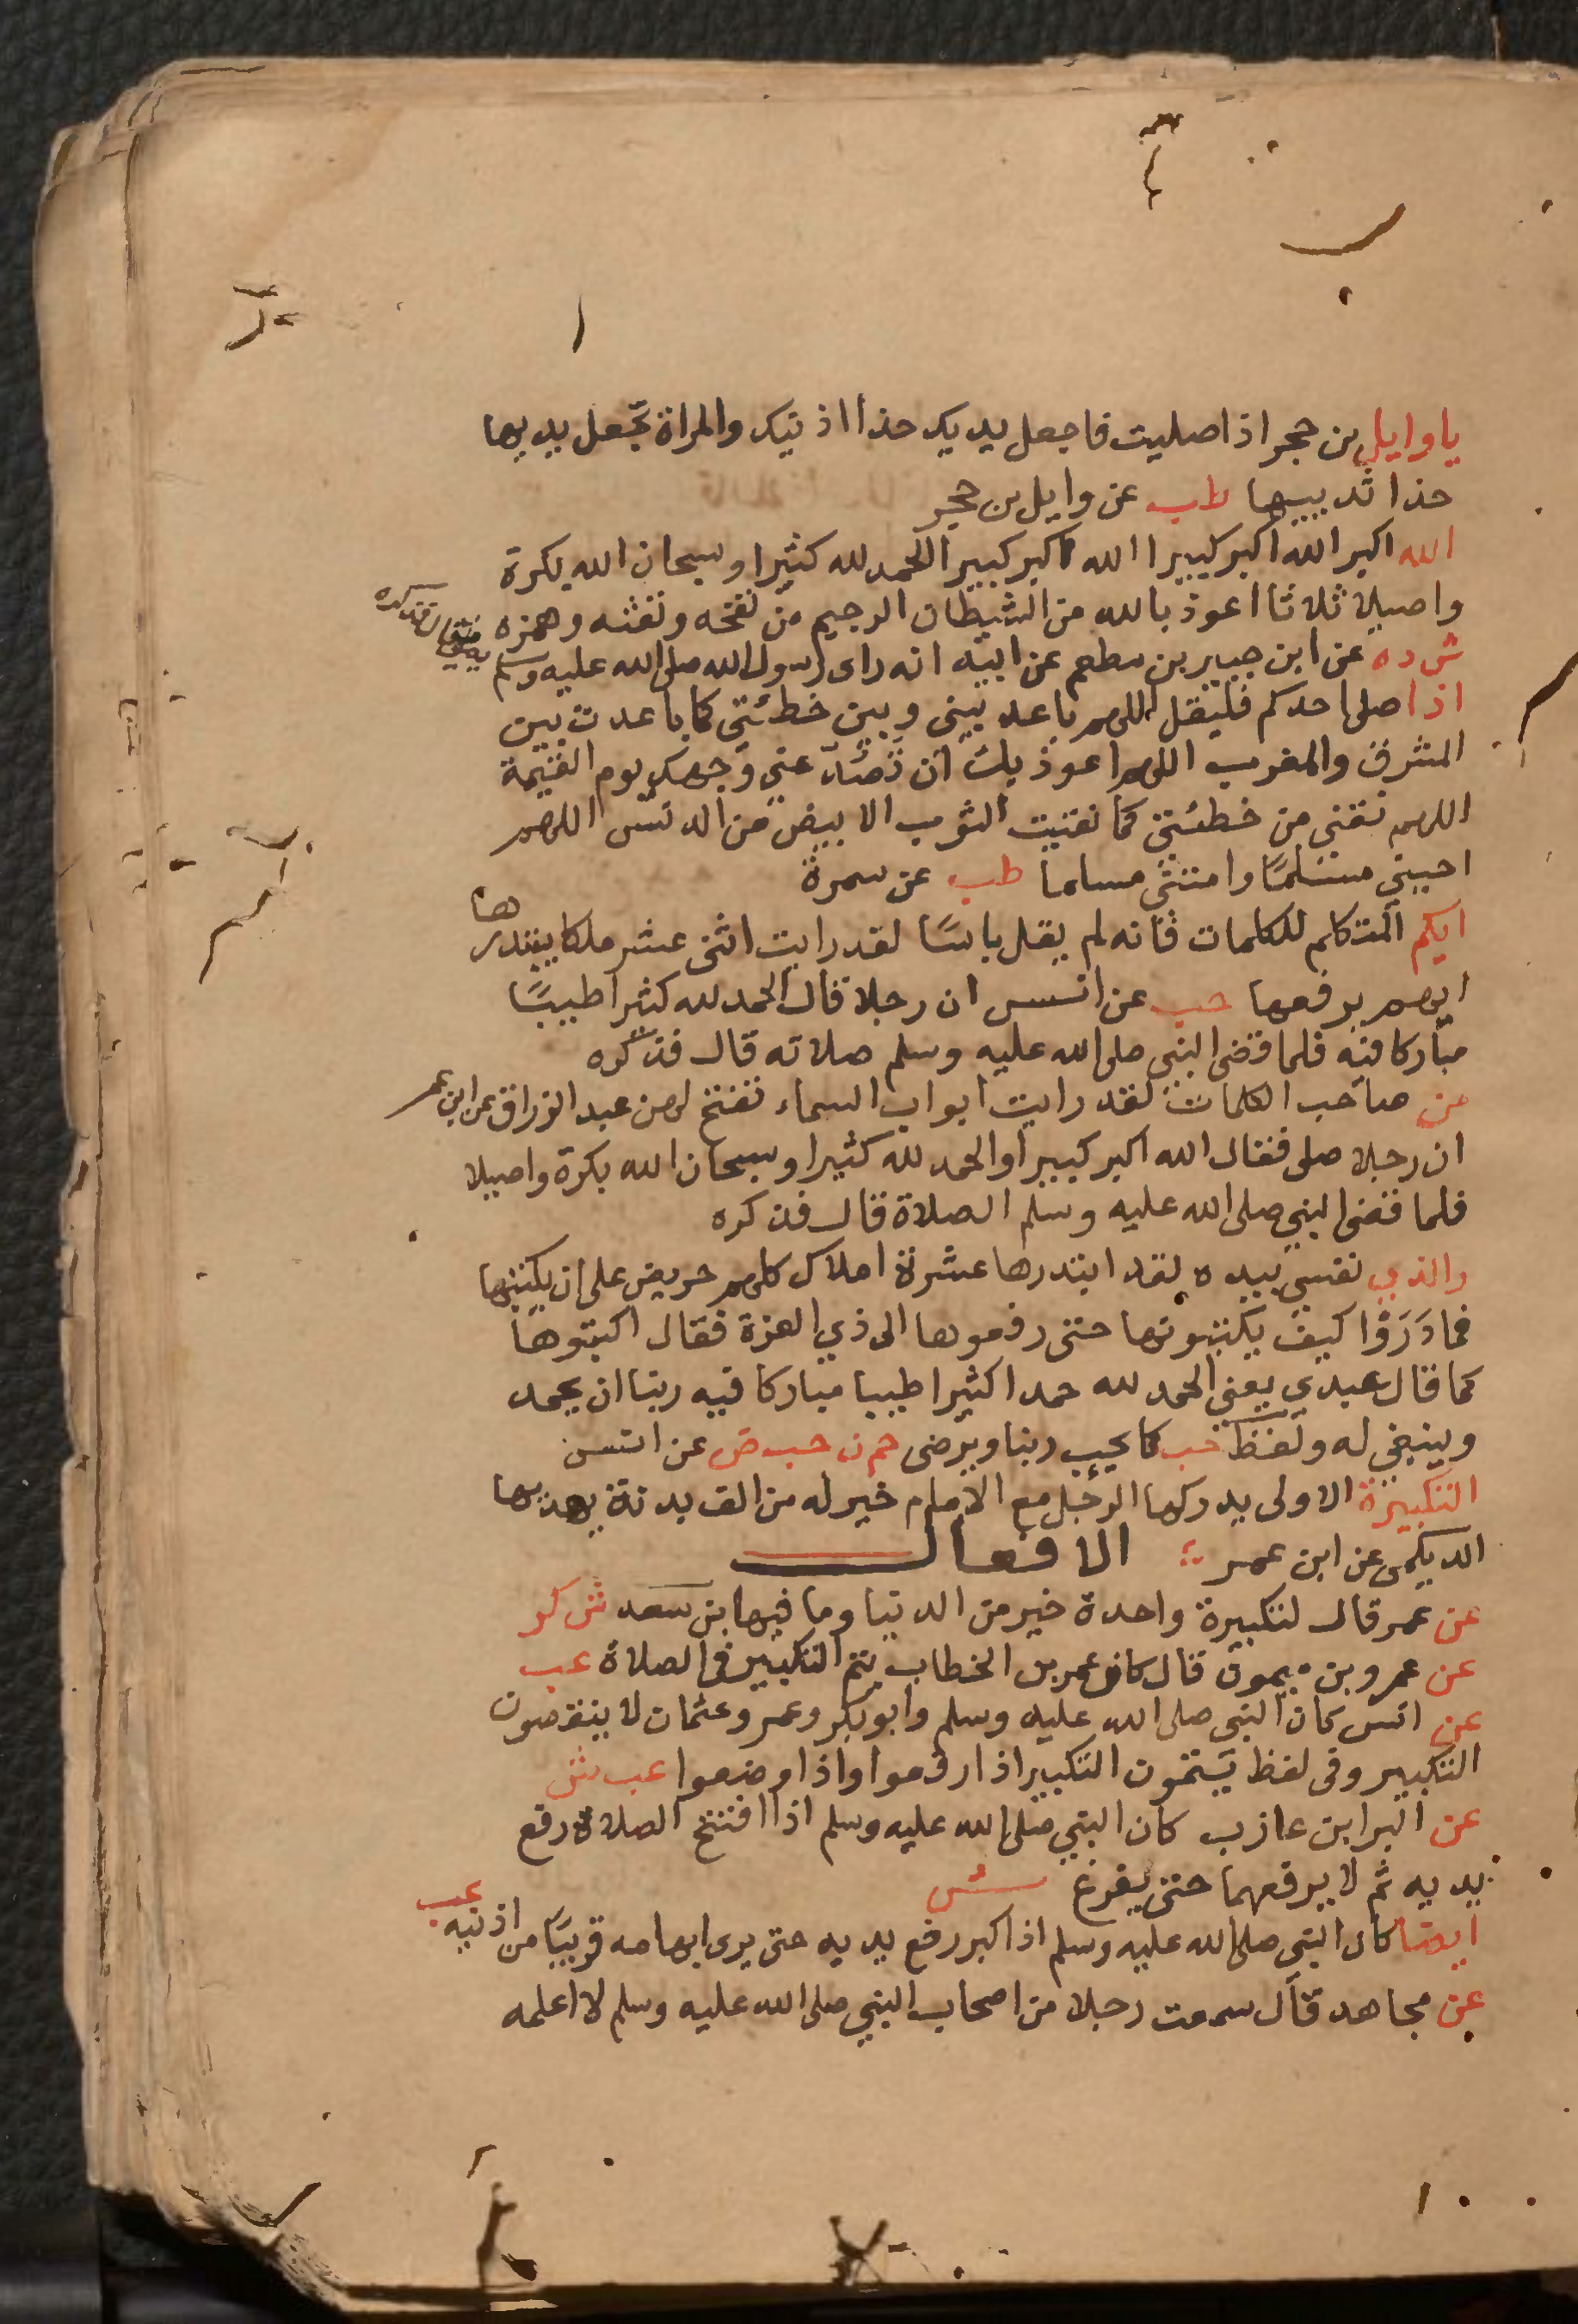 ياوايل بن حجر اذا صليت فاجعل يديك حذا اذنيك والمراة تجعل يديها
حذا ثدييها طب عن وايل بن حجر
الله اكبر الله اكبر كبيرا الله اكبر كبيرا الحمد لله كثيرا وسبحان الله بكرة
واصيلا ثلاثا اعوذ بالله من الشيطان الرجيم من نفخه ونفثه وهمزه
ش د ه عن ابن جبير بن مطعم عن ابيه انه راى رسول الله صلى الله عليه وسلم
اذا صلى احدكم فليقل اللهم باعد بيني وبين خطئتي كما باعدت بين
المشرق والمغرب اللهم اعوذ بك ان تصد عني وجهك يوم القيمة
اللهم نقني من خطئتي كما نقيت الثوب الابيض من الدنس اللهم
احيني مسلما وامتني مسلما طب عن سمرة
ايكم المتكلم للكلمات فانه لم يقل باسا لقد رايت اثنى عشر ملكا يبتدرها
ايهم يرفعها حب عن انس ان رجلا قال الحمد لله كثيرا طيبا
مباركا فيه فلما قضى النبي صلى الله عليه وسلم صلاته قال فذكره
من صاحب الكلمات لقد رايت ابواب السماء تفتح لهن عبد الرزاق عن ابن عمر
ان رجلا صلى فقال الله اكبر كبيرا والحمد لله كثيرا وسبحان الله بكرة واصيلا
فلما قضى النبي صلى الله عليه وسلم الصلاة قال فذكره
والذي نفسي بيده لقد ابتدرها عشرة املاك كلهم حريص على ان يكتبها
فما دروا كيف يكتبونها حتى رفعوها الى ذي العزة فقال اكتبوها
كما قال عبدي يعني الحمد لله حمدا كثيرا طيبا مباركا فيه ربنا ان يحمد
وينبغي له ولفظ حب كما يحب ربنا ويرضى حم ن حب ض عن انس
التكبيرة الاولى يدركها الرجل مع الامام خير له من الف بدنة يهديها
الديلمي عن ابن عمر الافعال
عن عمر قال لتكبيرة واحدة خير من الدنيا وما فيها ابن سعد ش كر
عن عمرو بن ميمون قال كان عمر بن الخطاب يتم التكبير في الصلاة عب
عن انس كان النبي صلى الله عليه وسلم وابو بكر وعمر وعثمان لا ينقصون
التكبير وفى لفظ يتمون التكبير اذا رفعوا واذا وضعوا عب ش
عن البرا بن عازب كان النبي صلى الله عليه وسلم اذا افتتح الصلاة رفع
يديه ثم لا يرفعهما حتى يفرغ ش
ايضا كان النبي صلى الله عليه وسلم اذا كبر رفع يديه حتى يرى ابهامه قريبا من اذنيه عب
عن مجاهد قال سمعت رجلا من اصحاب النبي صلى الله عليه وسلم لا اعلمه